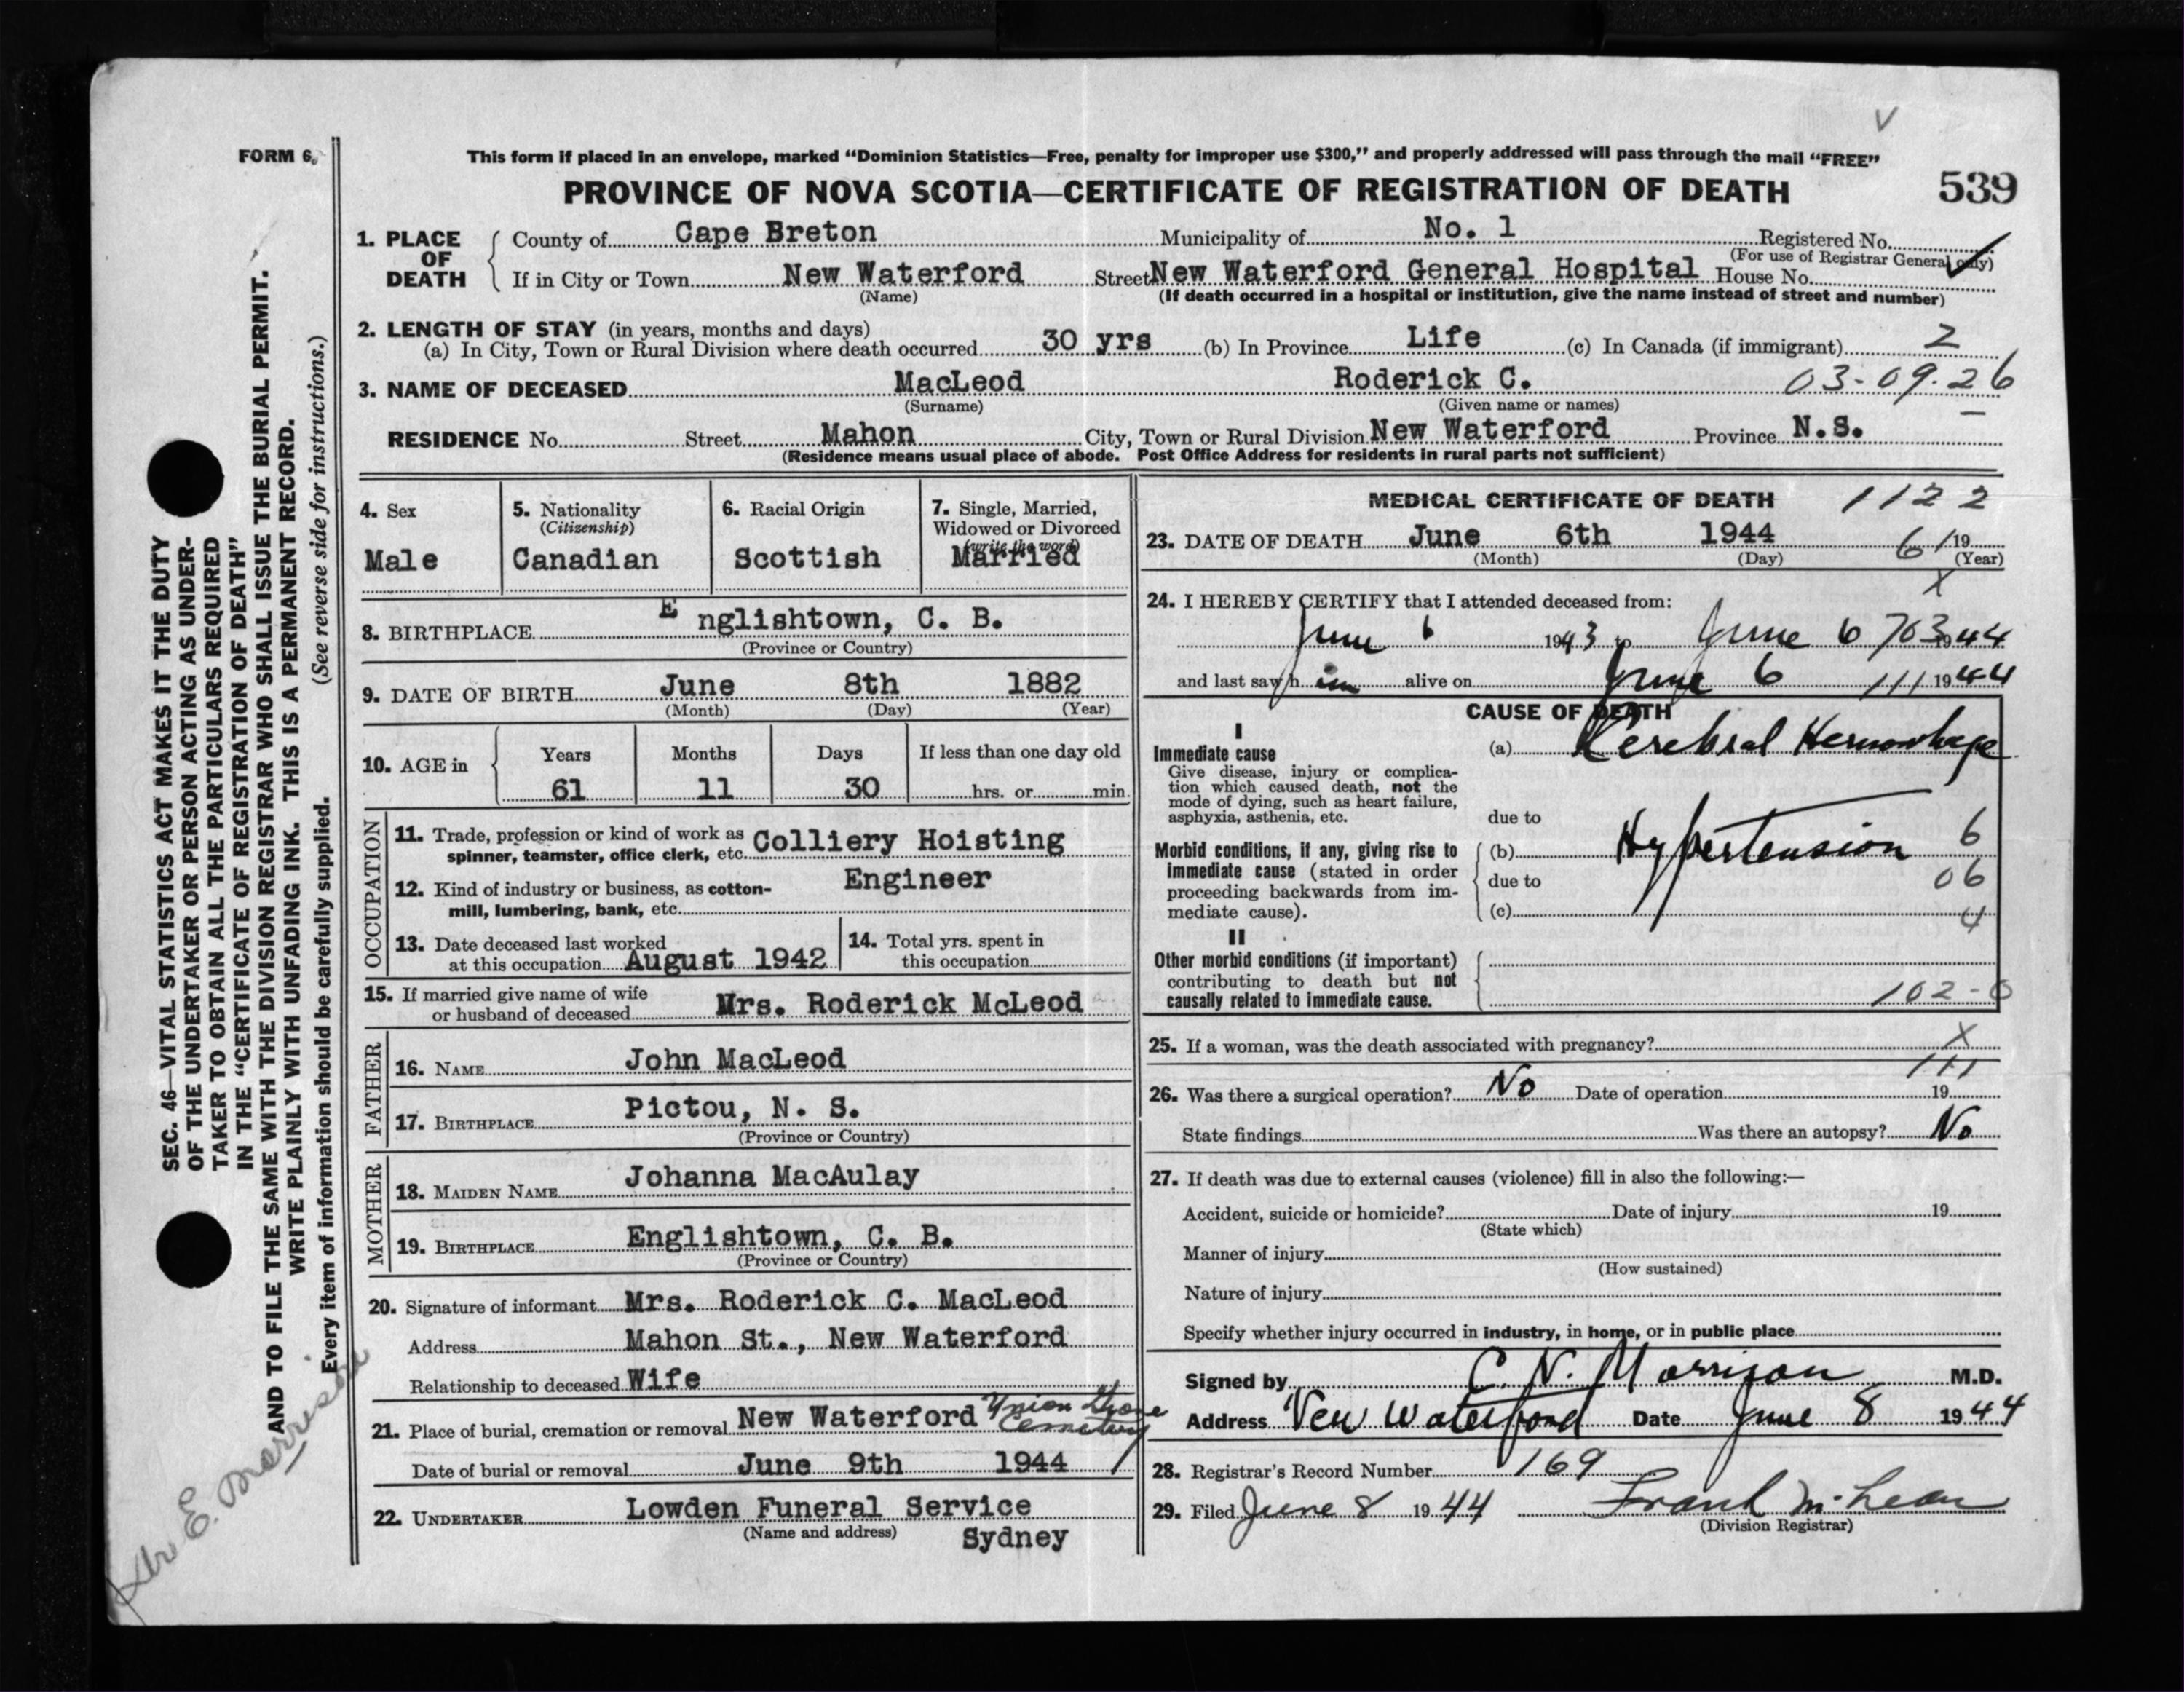 FORM 6.
This form if placed in an envelope, marked “Dominion Statistics—Free, penalty for improper use $300,” and properly addressed will pass through the mail “FREE”
PROVINCE OF NOVA SCOTIA—CERTIFICATE OF REGISTRATION OF DEATH 539
1. PLACE OF DEATH County of Cape Breton Municipality of No. 1 Registered No.
(For use of Registrar General only)
If in City or Town New Waterford Street New Waterford General Hospital House No.
(Name) (If death occurred in a hospital or institution, give the name instead of street and number)
2. LENGTH OF STAY (in years, months and days)
(a) In City, Town or Rural Division where death occurred 30 yrs (b) In Province Life (c) In Canada (if immigrant) 2
3. NAME OF DECEASED MacLeod Roderick C. 03-09-26
(Surname) (Given name or names)
RESIDENCE No. Street Mahon City, Town or Rural Division New Waterford Province N.S.
(Residence means usual place of abode. Post Office Address for residents in rural parts not sufficient)
4. Sex 5. Nationality 6. Racial Origin 7. Single, Married,
(Citizenship) Widowed or Divorced
(write the word)
Male Canadian Scottish Married
8. BIRTHPLACE Englishtown, C. B.
(Province or Country)
9. DATE OF BIRTH June 8th 1882
(Month) (Day) (Year)
10. AGE in Years Months Days If less than one day old
61 11 30 hrs. or min.
OCCUPATION
11. Trade, profession or kind of work as Colliery Hoisting
spinner, teamster, office clerk, etc.
12. Kind of industry or business, as cotton- Engineer
mill, lumbering, bank, etc.
13. Date deceased last worked 14. Total yrs. spent in
at this occupation August 1942 this occupation
15. If married give name of wife
or husband of deceased Mrs. Roderick McLeod
FATHER
16. NAME John MacLeod
17. BIRTHPLACE Pictou, N. S.
(Province or Country)
MOTHER
18. MAIDEN NAME Johanna MacAulay
19. BIRTHPLACE Englishtown, C. B.
(Province or Country)
20. Signature of informant Mrs. Roderick C. MacLeod
Address Mahon St., New Waterford
Relationship to deceased Wife
21. Place of burial, cremation or removal New Waterford Union Grove Cemetery
Date of burial or removal June 9th 1944
22. UNDERTAKER Lowden Funeral Service
(Name and address) Sydney
MEDICAL CERTIFICATE OF DEATH 1122
23. DATE OF DEATH June 6th 1944 61 19
(Month) (Day) (Year)
X
24. I HEREBY CERTIFY that I attended deceased from:
June 6 1943 to June 6 703 1944
and last saw him alive on June 6 111 1944
CAUSE OF DEATH
I
Immediate cause (a) Cerebral Hemorrhage
Give disease, injury or complica-
tion which caused death, not the
mode of dying, such as heart failure,
asphyxia, asthenia, etc. due to
Morbid conditions, if any, giving rise to (b) Hypertension 6
immediate cause (stated in order
proceeding backwards from im- due to 06
mediate cause). (c) 4
II
Other morbid conditions (if important)
contributing to death but not
causally related to immediate cause. 102-0
25. If a woman, was the death associated with pregnancy? X
111
26. Was there a surgical operation? No Date of operation 19
State findings Was there an autopsy? No
27. If death was due to external causes (violence) fill in also the following:—
Accident, suicide or homicide? Date of injury 19
(State which)
Manner of injury
(How sustained)
Nature of injury
Specify whether injury occurred in industry, in home, or in public place
Signed by C. N. Morrison M.D.
Address New Waterford Date June 8 1944
28. Registrar's Record Number 169
29. Filed June 8 1944 Frank McLean
(Division Registrar)
SEC. 46—VITAL STATISTICS ACT MAKES IT THE DUTY
OF THE UNDERTAKER OR PERSON ACTING AS UNDER-
TAKER TO OBTAIN ALL THE PARTICULARS REQUIRED
IN THE “CERTIFICATE OF REGISTRATION OF DEATH”
AND TO FILE THE SAME WITH THE DIVISION REGISTRAR WHO SHALL ISSUE THE BURIAL PERMIT.
WRITE PLAINLY WITH UNFADING INK. THIS IS A PERMANENT RECORD.
Every item of information should be carefully supplied. (See reverse side for instructions.)
E. Morrison